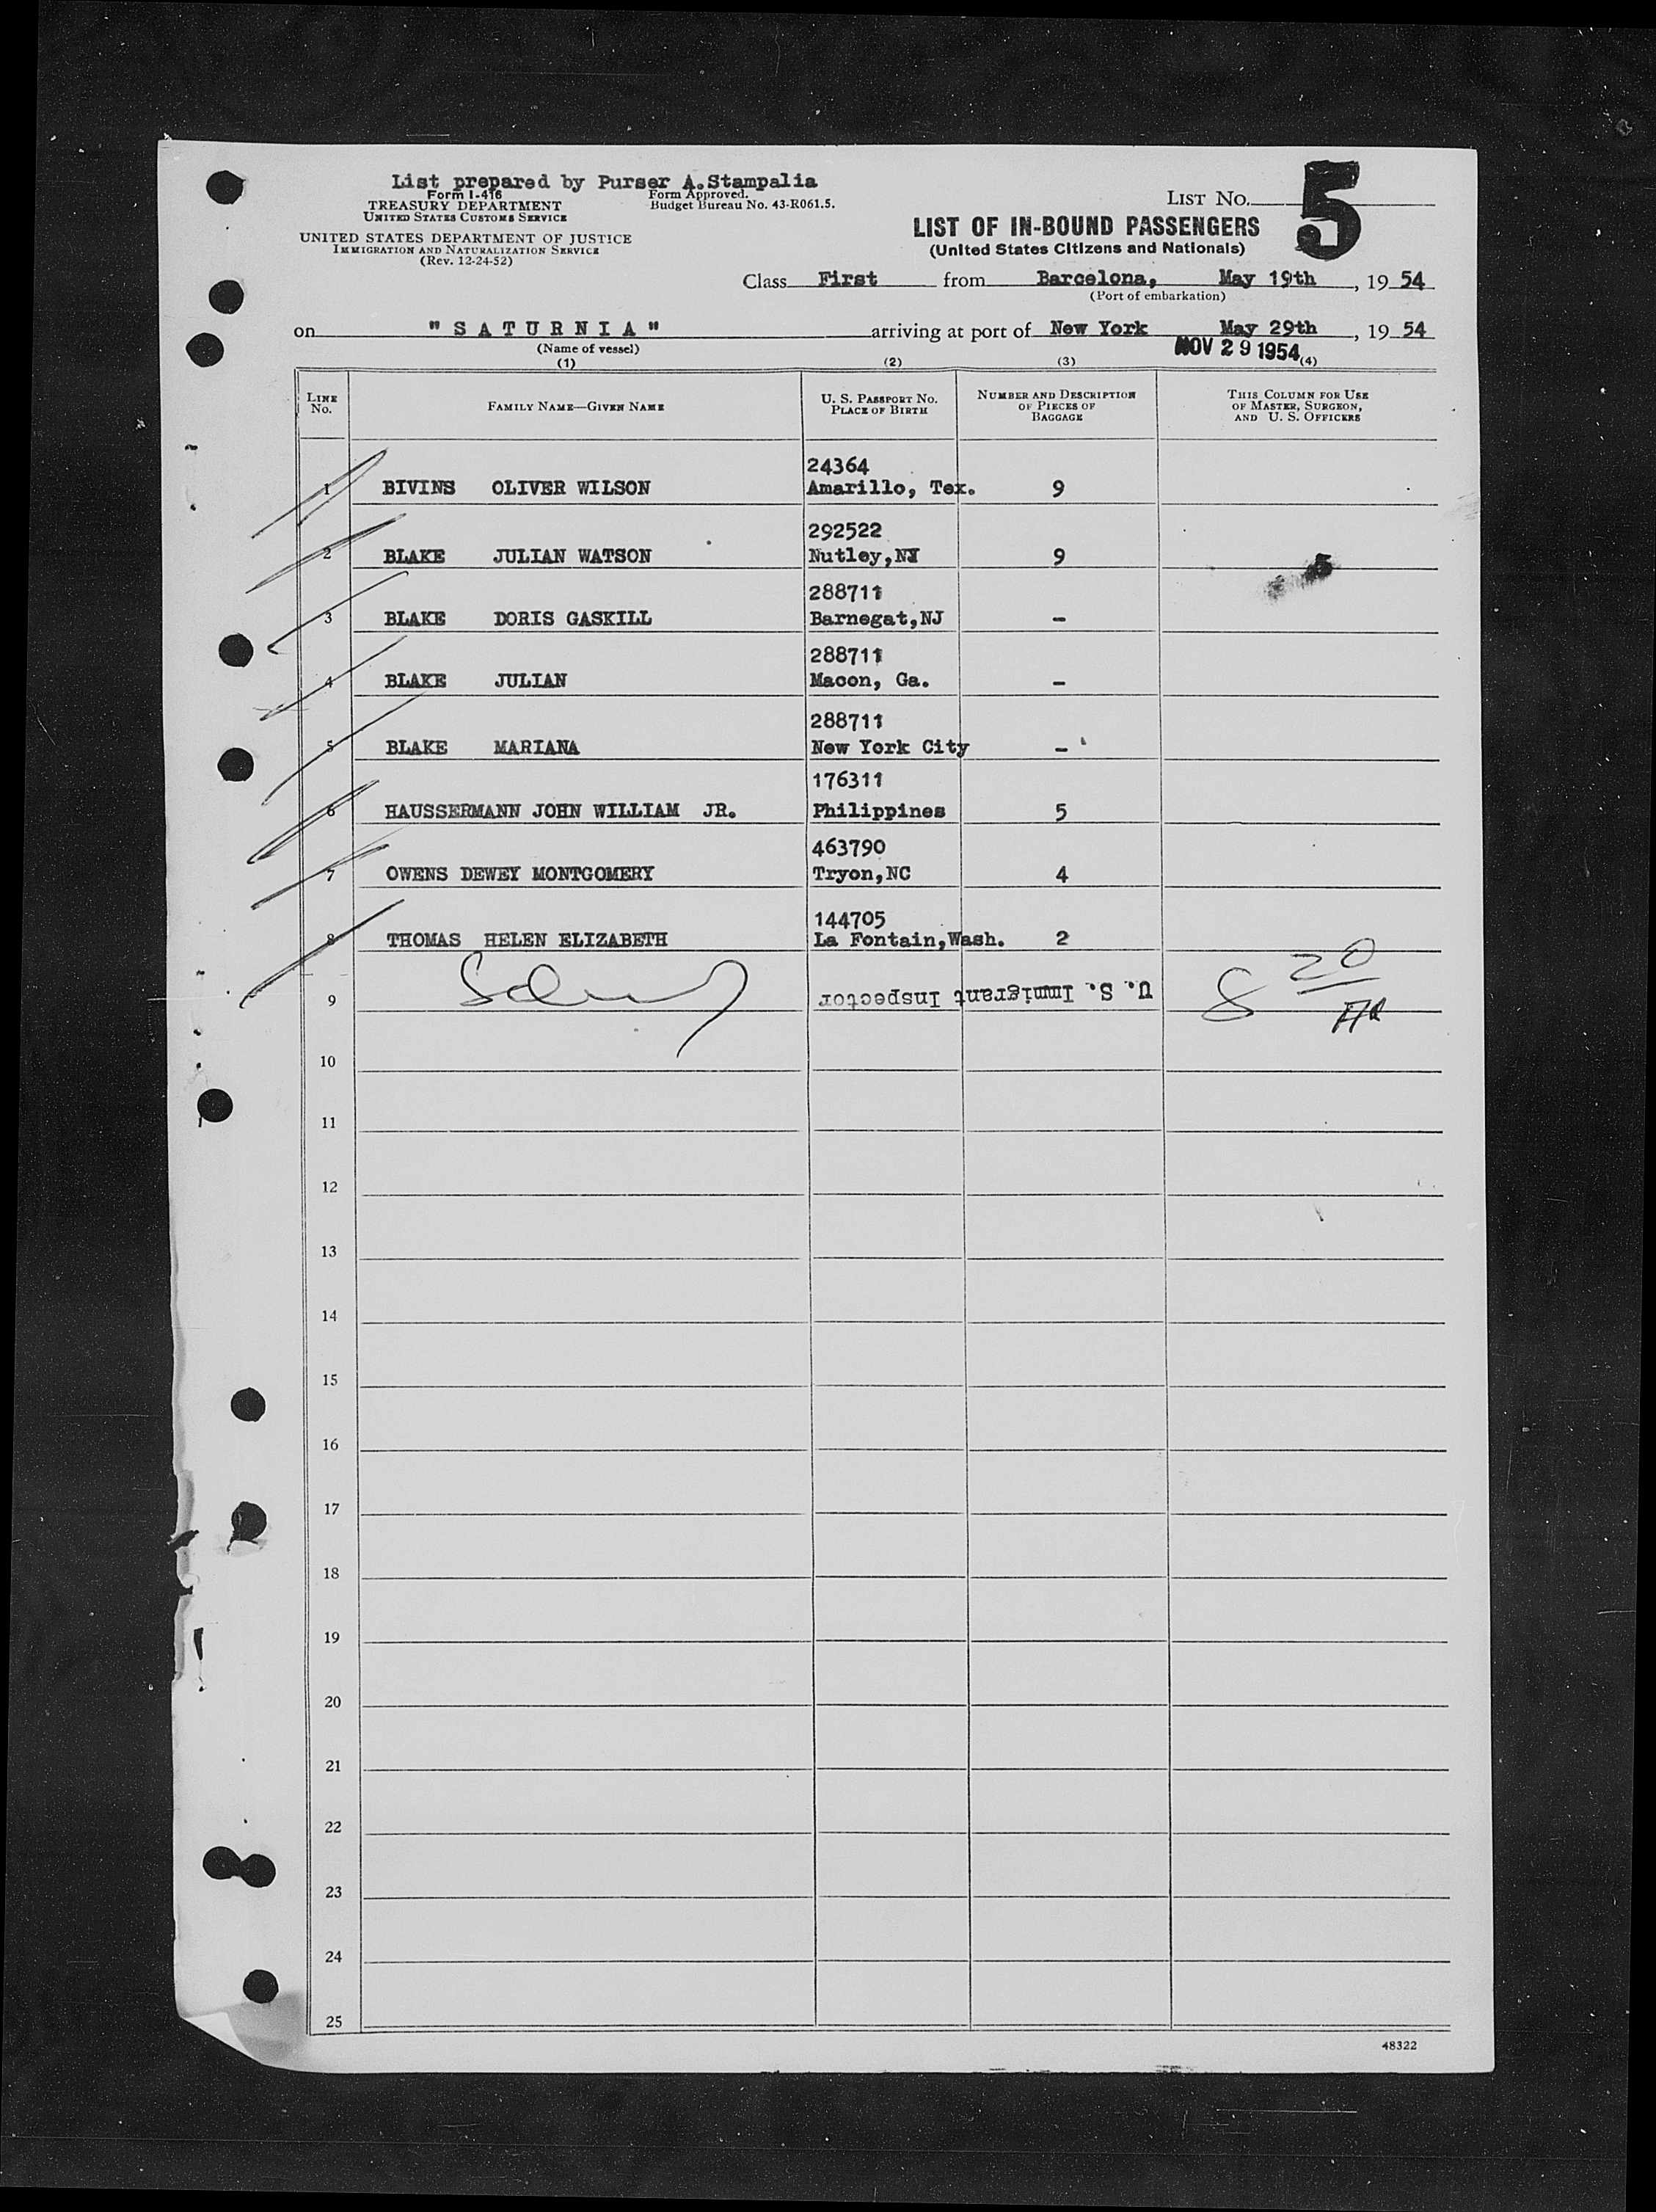 List prepared by Purser A.Stampalia
Form I-416
TREASURY DEPARTMENT
UNITED STATES CUSTOMS SERVICE
Form Approved.
Budget Bureau No. 43-R061.5.
UNITED STATES DEPARTMENT OF JUSTICE
IMMIGRATION AND NATURALIZATION SERVICE
(Rev. 12-24-52)
LIST NO. 5
LIST OF IN-BOUND PASSENGERS
(United States Citizens and Nationals)
Class First from Barcelona, May 19th, 19 54
(Port of embarkation)
on "SATURNIA" arriving at port of New York May 29th, 19 54
(Name of vessel)
NOV 29 1954
(1) (2) (3) (4)
LINE No. FAMILY NAME—GIVEN NAME U. S. PASSPORT NO. PLACE OF BIRTH NUMBER AND DESCRIPTION OF PIECES OF BAGGAGE THIS COLUMN FOR USE OF MASTER, SURGEON, AND U. S. OFFICERS
24364
1 BIVINS OLIVER WILSON Amarillo, Tex. 9
292522
2 BLAKE JULIAN WATSON Nutley,NJ 9
288711
3 BLAKE DORIS GASKILL Barnegat,NJ -
288711
4 BLAKE JULIAN Macon, Ga. -
288711
5 BLAKE MARIANA New York City -
176311
6 HAUSSERMANN JOHN WILLIAM JR. Philippines 5
463790
7 OWENS DEWEY MONTGOMERY Tryon,NC 4
144705
8 THOMAS HELEN ELIZABETH La Fontain,Wash. 2
9 U. S. Immigrant Inspector 8 20
10
11
12
13
14
15
16
17
18
19
20
21
22
23
24
25
48322